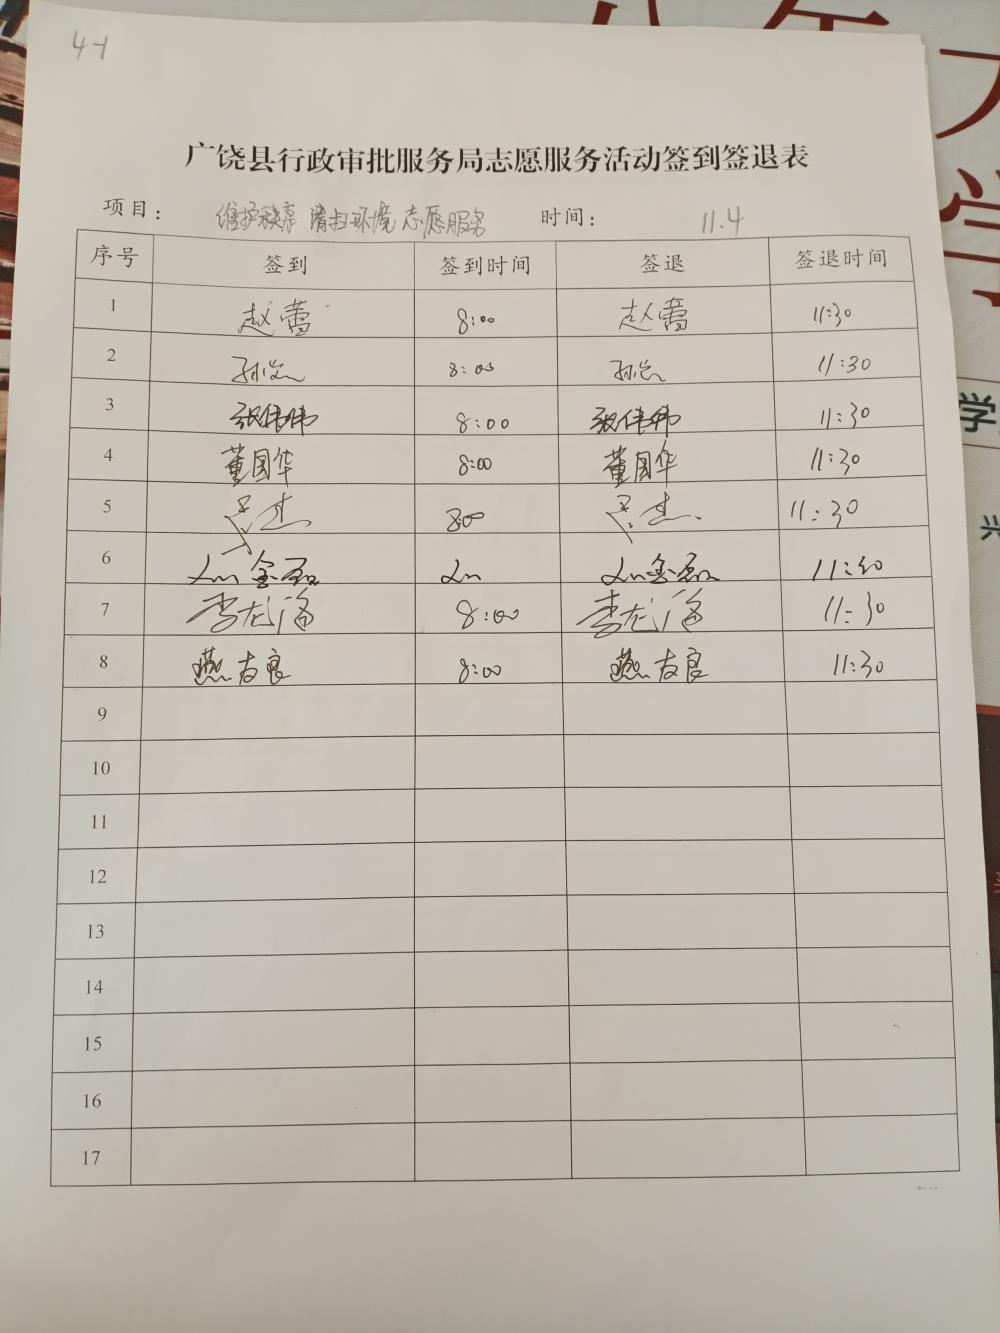 4-1
广饶县行政审批服务局志愿服务活动签到签退表
项目： 维护秩序 清扫环境 志愿服务 时间： 11.4
序号 签到 签到时间 签退 签退时间
1 赵蕾 8:00 赵蕾 11:30
2 孙 8:00 孙 11:30
3 张伟伟 8:00 张伟伟 11:30
4 董国华 8:00 董国华 11:30
5 8:00 11:30
6 11:30
7 李龙 8:00 李龙 11:30
8 燕友良 8:00 燕友良 11:30
9
10
11
12
13
14
15
16
17
学
兴